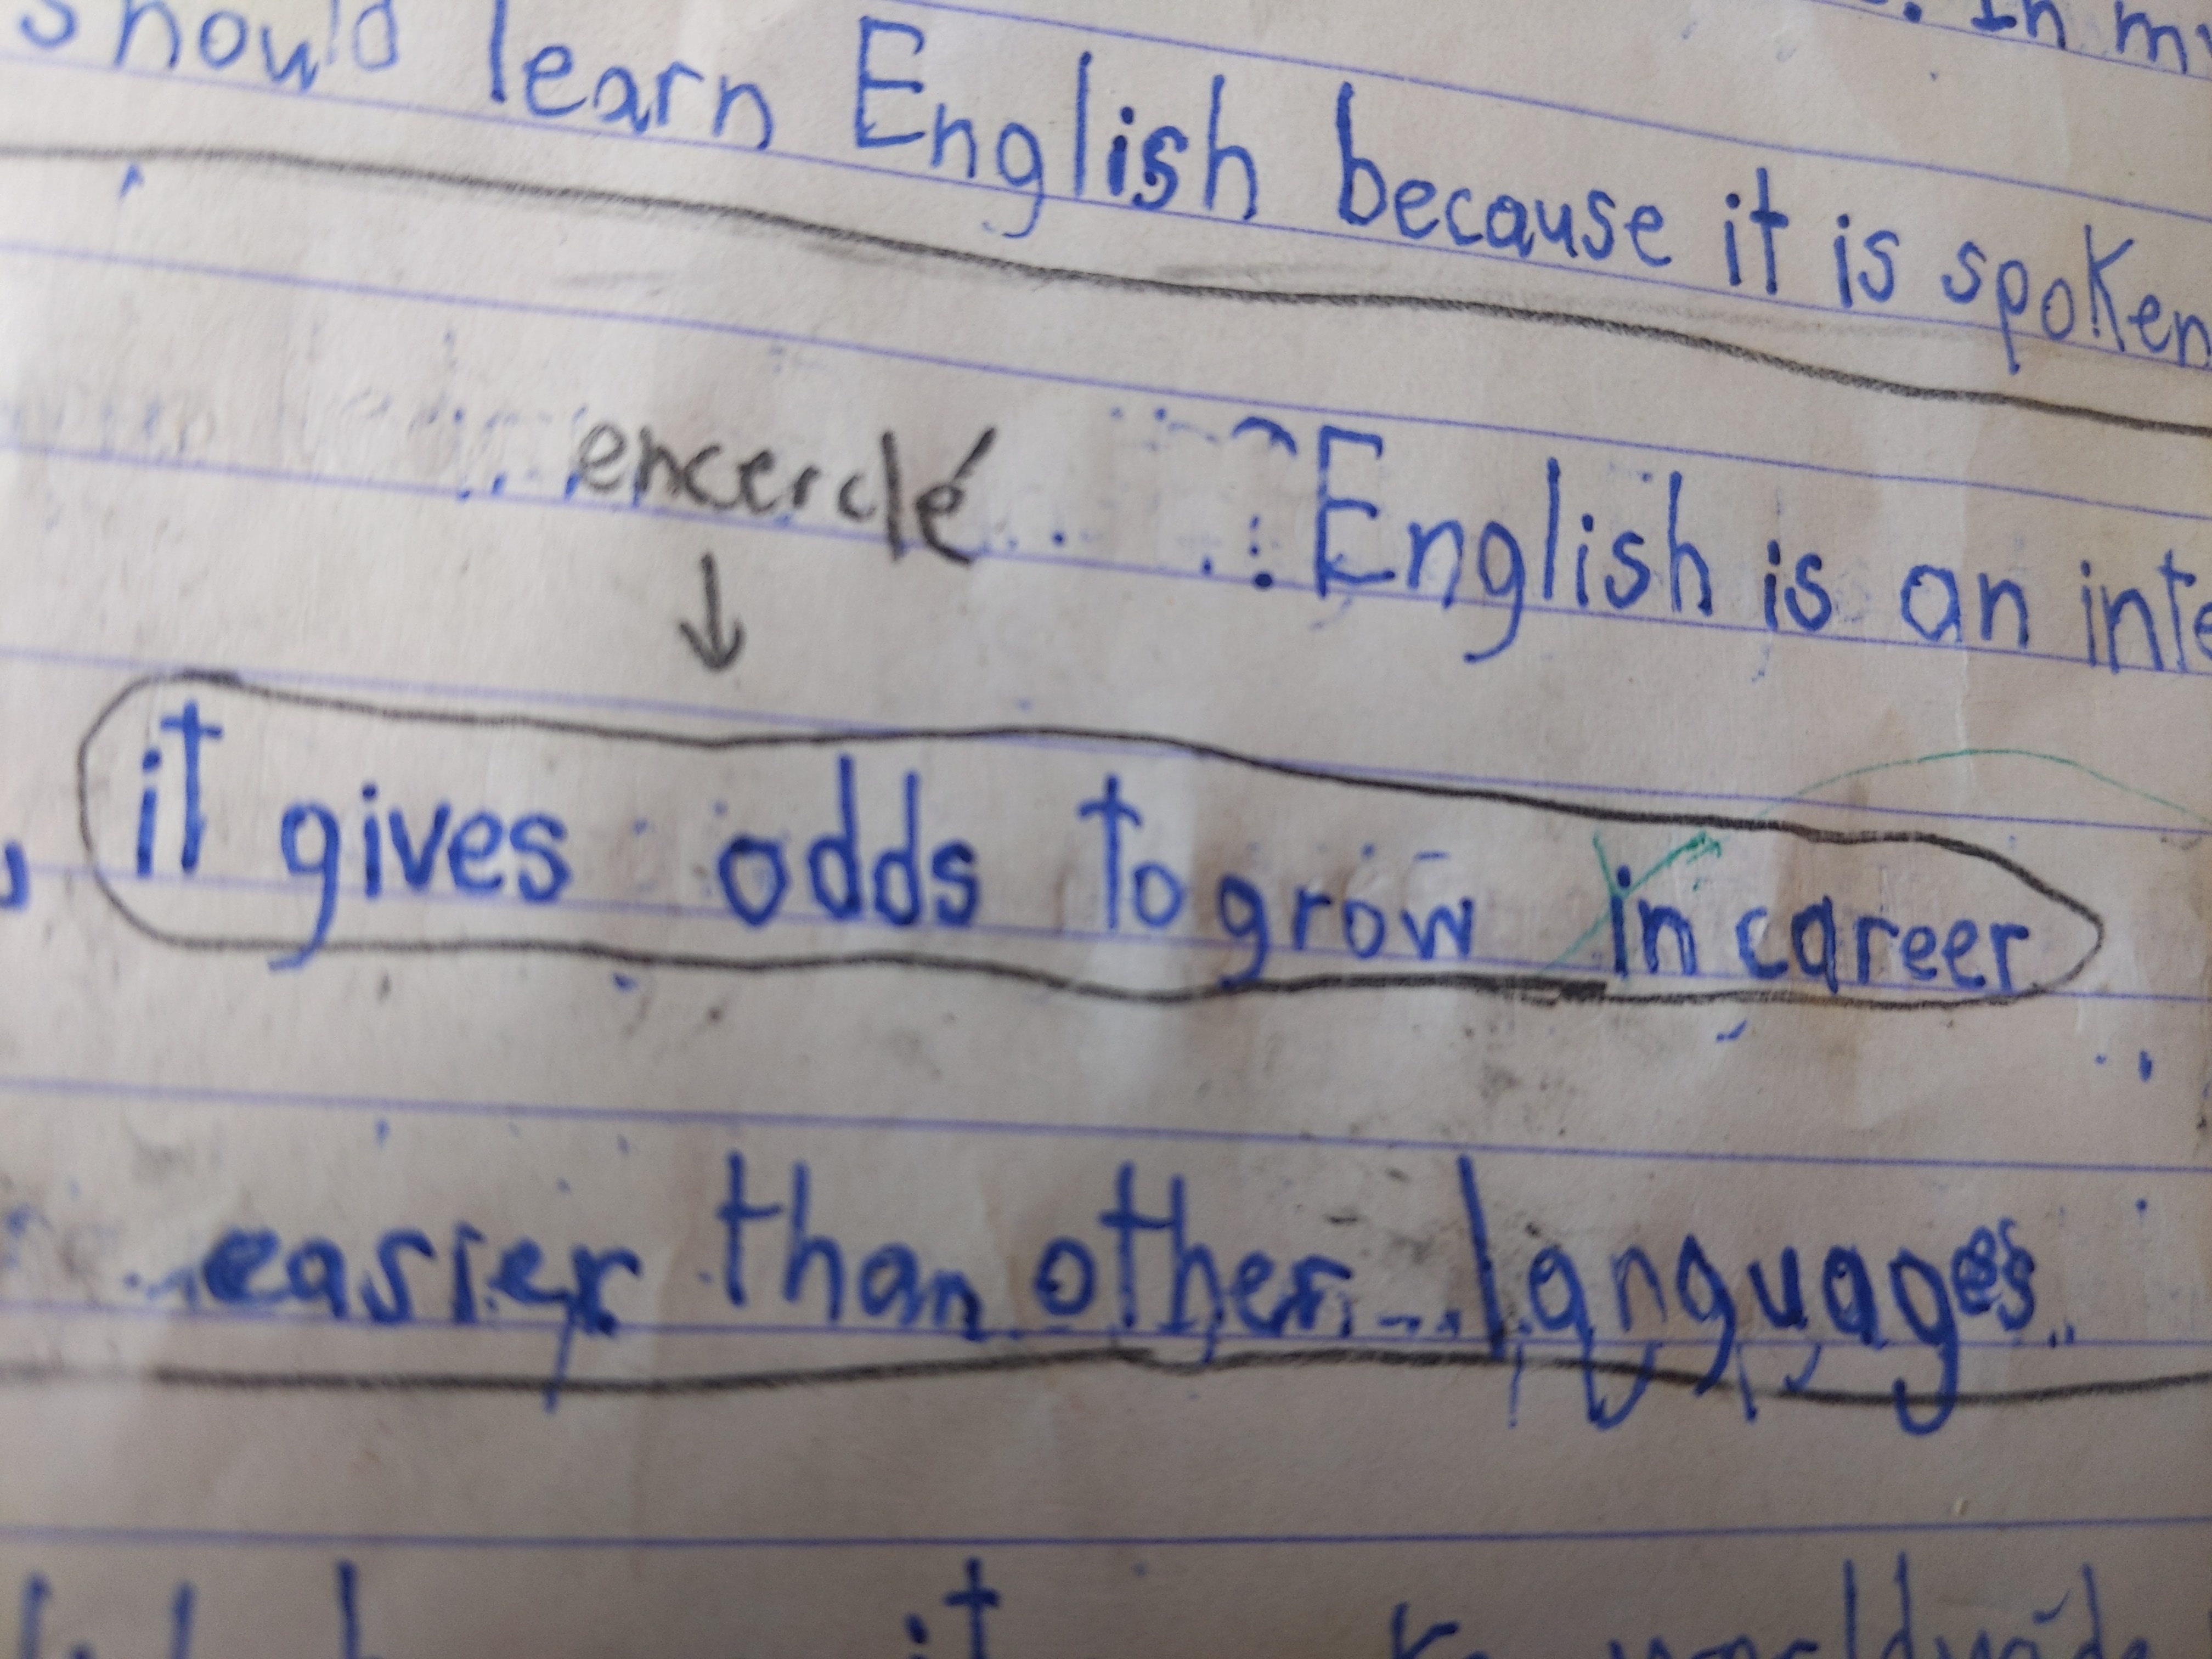 . In my
should learn English because it is spoken
encerclé
English is an inte
, it gives odds to grow in career
easier than other languages
it